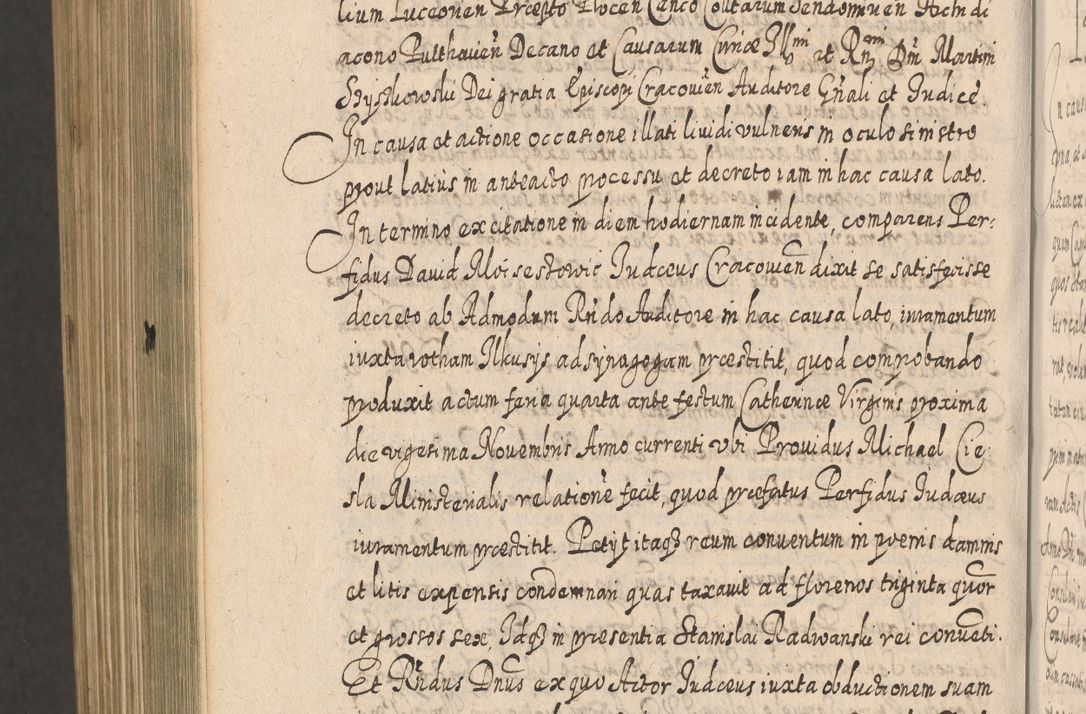 lium Luceorien Præpto Plocen Canco Coll[...]tarum Sendomirien Archidi
acono Pulthouien̄ Decano et Causarum Curiæ Illmi et Rmi Dni Martini
Szyszkowski Dei gratia Episcopi Cracouien̄ Auditore Gn̄ali et Iudice
In causa et actione occasione illati liuidi vulneris in oculo sinistro
prout latius in anteacto processu et decreto iam in hac causa lato.
In termino ex citatione in diem hodiernam incidente, comparens Per-
fidus Dauid Moisestowic Iudæus Cracouien dixit se satisfecisse
decreto ab Admodum Rn̄do Auditore in hac causa lato, iuramentum
iuxta rotham Ilkusys ad synagogam præstitit, quod comprobando
produxit actum feria quarta ante festum Catherinæ Virginis proxima
die vigesima Nouembris Anno currenti vbi Prouidus Michael Cie-
sla Ministerialis relatione fecit, quod præfatus Perfidus Iudæus
iuramentum præstitit. Petyt itaqz reum conuentum in præmis damnis
et litis expensis condemnari quas taxauit ad florenos triginta quor
et grossos sex. Idqz in præsentia Stanislai Radwanski rei conueti.
Et Rn̄dus Dnus ex quo Actor Iudæus iuxta obductionem suam